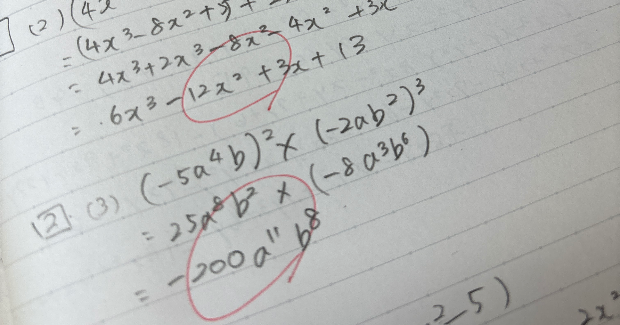 (2) (4x
= (4x³-8x²+
= 4x³+2x³-8x²-4x²+3x
= 6x³-12x²+3x+13
[2] (3) (-5a⁴b)²×(-2ab²)³
= 25a⁸b²×(-8a³b⁶)
= -200a¹¹b⁸
2-5)
2x²